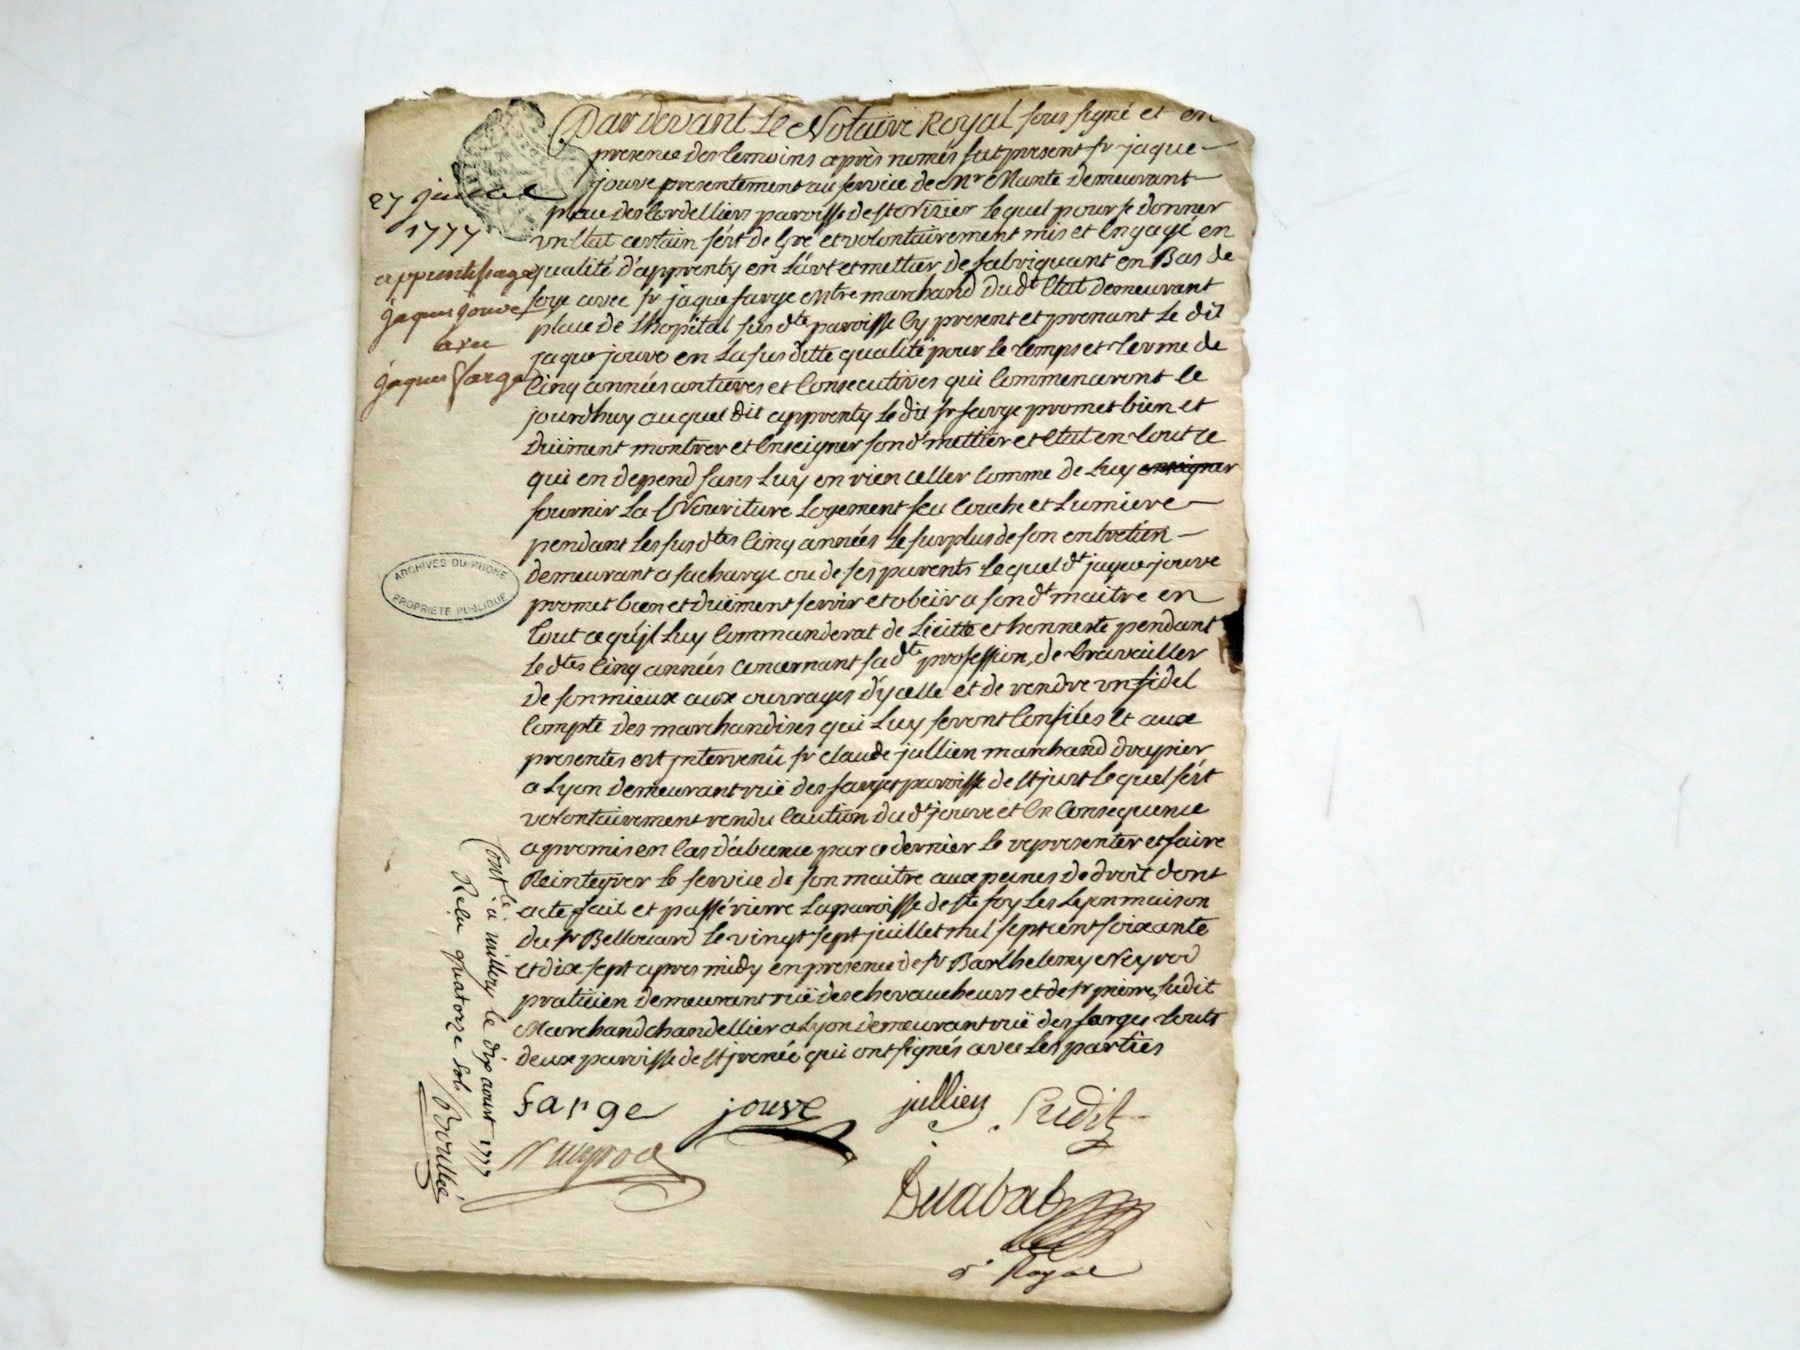 Pardevant Le Notaire Royal sous signé et en
presence des temoins après només fut present sr jaque
jouve presentement au service de Mr Mante demeurant
place des Cordelliers paroisse de st Nizier Lequel pour se donner
un Etat certain s'ést de Gré et volontairement mis et Engagé en
qualité d'apprenty en L'art et mettier de fabriquant en Bas de
soye avec sr jaque farge maitre marchand dudt Etat demeurant
place de L'hopital susdte paroisse Cy present et prenant Le dit
jaque jouve en La susditte qualité pour Le temps et terme de
Cinq années antieres et Consecutives qui Commenceront Ce
jourdhuy auquel dit apprenty Le dit sr farge promet bien et
Duëment montrer et Enseigner sondt mettier et Etat en tout ce
qui en depend sans Luy en rien celler Comme de Luy enseigner
fournir La Nouriture Logement feu Couche et Lumiere
pendant Les susdtes Cinq années Le surplus de son entretien
demeurant a sa charge ou de ses parents Lequel dt jaque jouve
promet bien et duëment servir et obeïr a sondt maitre en
tout ce qu'jl Luy Commanderat de Licitte et honneste pendant
Ledtes Cinq années concernant sa dte profession, de travailler
de son mieux aux ouvrages d'ycelle et de rendre un fidel
Compte des marchandises qui Luy seront Confiées et aux
presentes est jntervenu sr claude jullien marchand drapier
a Lyon demeurant ruë des farges paroisse de st just Lequel s'ést
volontairement rendu Caution du dt jouve et En Consequence
a promis en Cas d'absence par ce dernier Le representer et faire
Reintegrer Le service de son maitre aux peines de droit dont
acte fait et passé rierre La paroisse de ste foy Les Lyon maison
du sr Bellouard Le vingt sept juillet mil sept cent soixante
et dix sept apres midy en presence de sr Barthelemy Neyrod
praticien demeurant ruë des chevaucheurs et de sr pierre Ludit
Marchand chandellier a Lyon demeurant ruë des farges touts
deux paroisse de st jrenée qui ont signés avec Les parties
farge jouve jullien Ludit
Neyrod
Royal
27 juillet
1777
apprentissage
jaques jouve
avec
jaques farge
ARCHIVES DU RHONE
PROPRIETE PUBLIQUE
Contlé a millery le dix aoust 1777
Reçu quatorze sols